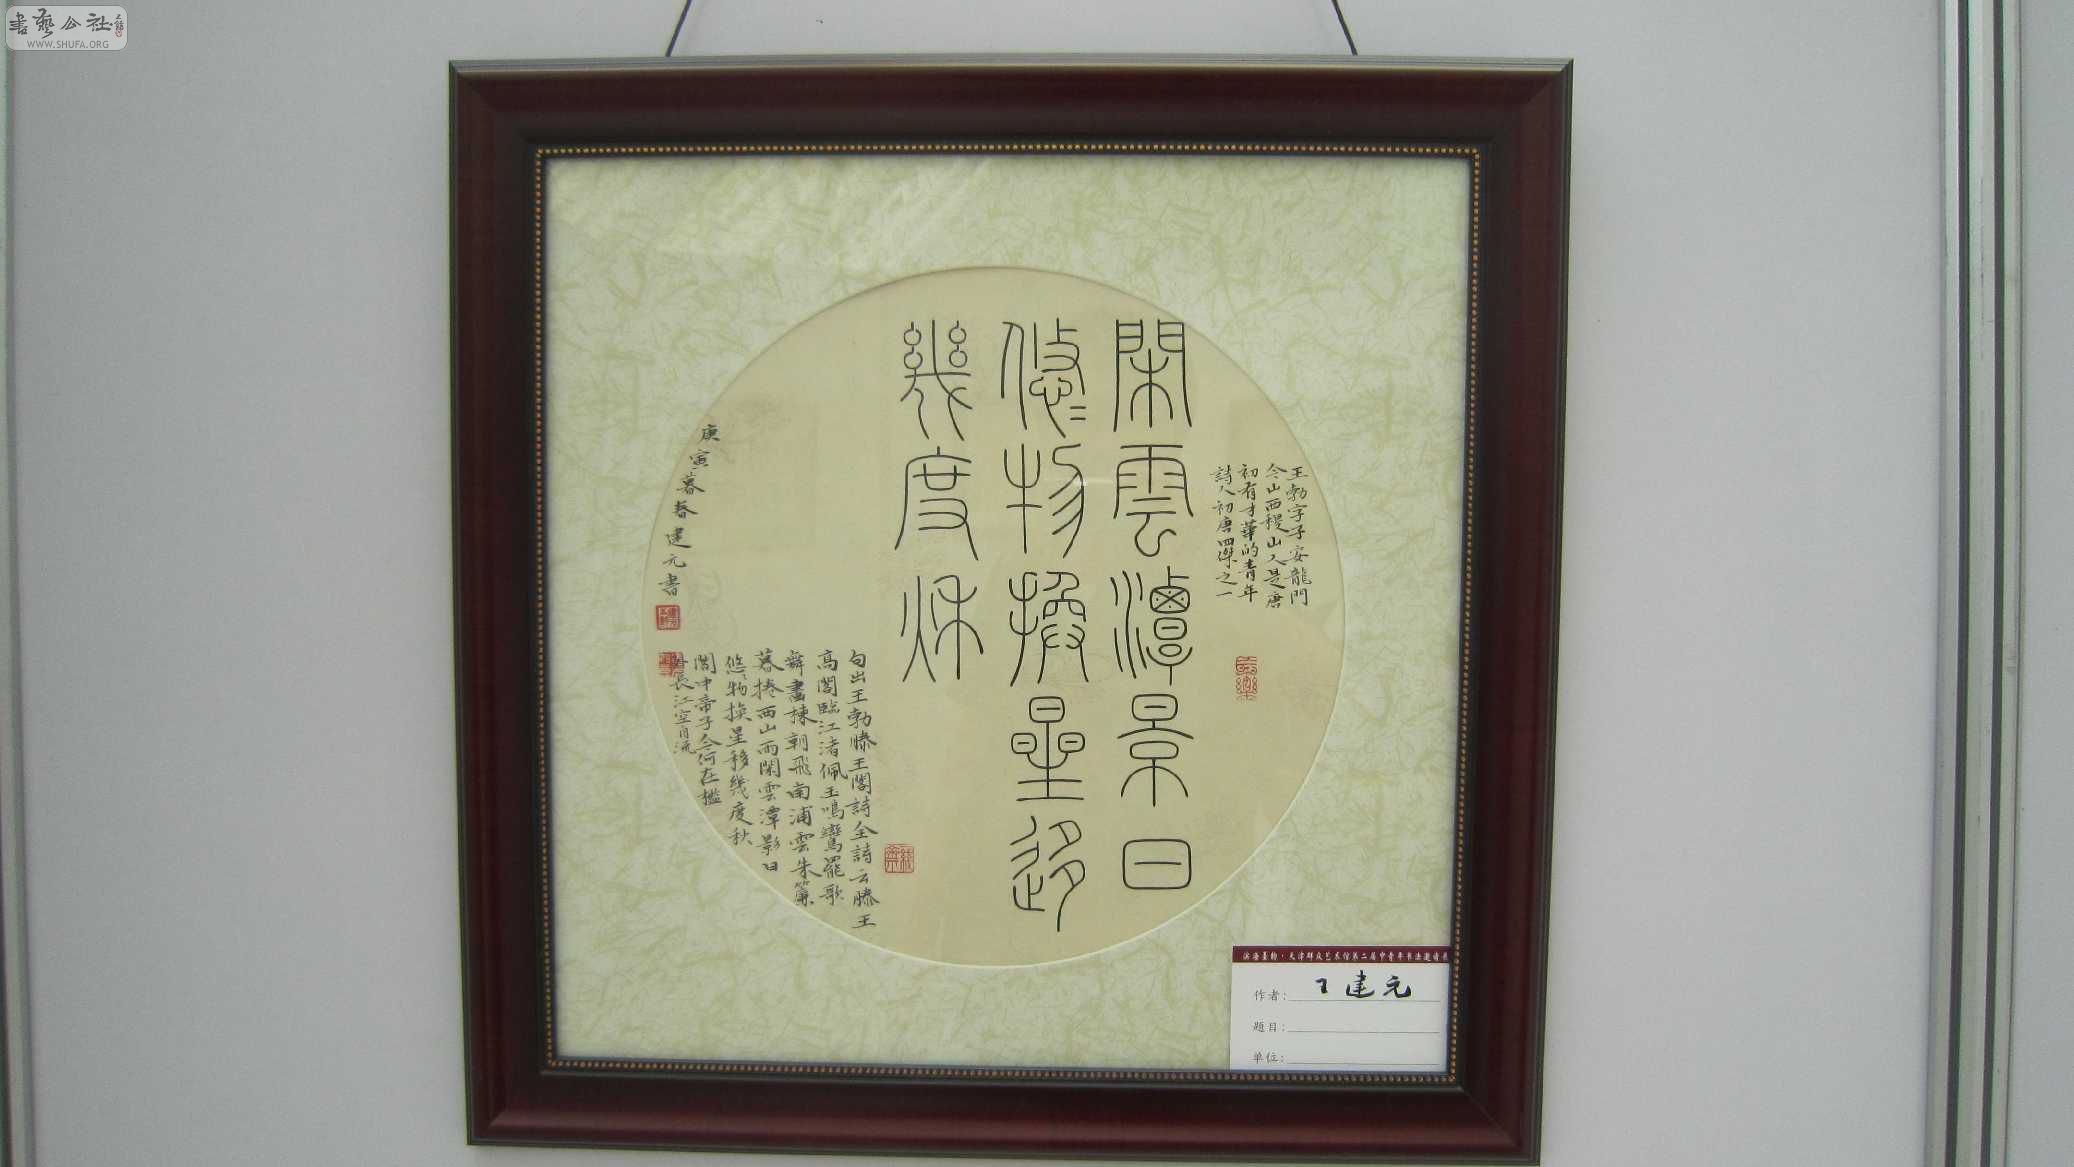 書藝公社
WWW.SHUFA.ORG
閑雲潭景日
悠〻物換星移
幾度秌
王勃字子安龍門
今山西稷山人是唐
初有才華的青年
詩人初唐四傑之一
句出王勃滕王閣詩全詩云滕王
高閣臨江渚佩玉鳴鸞罷歌
舞畫棟朝飛南浦雲朱簾
暮捲西山雨閑雲潭影日
悠〻物換星移幾度秋
閣中帝子今何在檻
外長江空自流
庚寅暮春建元書
滨海墨韵·天津群众艺术馆第二届中青年书法邀请展
作者：王建元
题目：
单位：